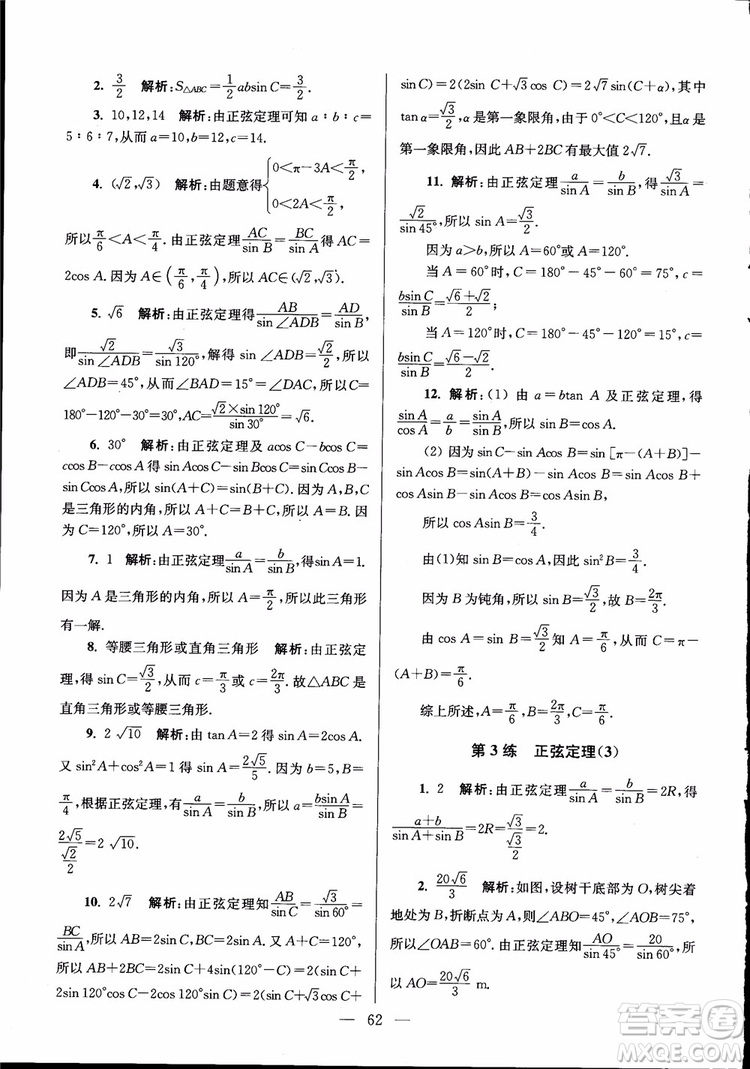 2. 3/2 解析:S△ABC=1/2absin C=3/2.
3. 10,12,14 解析:由正弦定理可知 a∶b∶c=
5∶6∶7,从而 a=10,b=12,c=14.
4. (√2,√3) 解析:由题意得{0<π-3A<π/2, 0<2A<π/2,
所以π/6<A<π/4. 由正弦定理AC/sin B=BC/sin A得 AC=
2cos A. 因为 A∈(π/6,π/4),所以 AC∈(√2,√3).
5. √6 解析:由正弦定理得AB/sin∠ADB=AD/sin B,
即√2/sin∠ADB=√3/sin 120°,解得 sin∠ADB=√2/2,所以
∠ADB=45°,从而∠BAD=15°=∠DAC,所以 C=
180°-120°-30°=30°,AC=√2×sin 120°/sin 30°=√6.
6. 30° 解析:由正弦定理及 acos C-bcos C=
ccos B-ccos A 得 sin Acos C-sin Bcos C=sin Ccos B-
sin Ccos A,所以 sin(A+C)=sin(B+C). 因为 A,B,C
是三角形的内角,所以 A+C=B+C,所以 A=B. 因
为 B=30°,所以 A=30°.
7. 1 解析:由正弦定理a/sin A=b/sin B,得sin A=1.
因为 A 是三角形的内角,所以 A=π/2,所以此三角形
有一解.
8. 等腰三角形或直角三角形 解析:由正弦定
理,得 sin C=√3/2,从而 c=π/3或 c=2π/3. 故△ABC 是
直角三角形或等腰三角形.
9. 2√10 解析:由 tan A=2 得 sin A=2cos A.
又 sin²A+cos²A=1,所以 sin A=2√5/5. 因为 b=5,B=
π/4,根据正弦定理,有a/sin A=b/sin B,所以 a=bsin A/sin B=
2√5/(√2/2)=2√10.
10. 2√7 解析:由正弦定理知AB/sin C=√3/sin 60°=
BC/sin A,所以 AB=2sin C,BC=2sin A. 又 A+C=120°,
所以 AB+2BC=2sin C+4sin(120°-C)=2(sin C+
2sin 120°cos C-2cos 120°sin C)=2(sin C+√3cos C+
sin C)=2(2sin C+√3cos C)=2√7sin(C+α),其中
tan α=√3/2,α 是第一象限角,由于 0°<C<120°,且 α 是
第一象限角,因此 AB+2BC 有最大值 2√7.
11. 解析:由正弦定理a/sin A=b/sin B,得√3/sin A=
√2/sin 45°,所以 sin A=√3/2.
因为 a>b,所以 A=60°或 A=120°.
当 A=60°时,C=180°-45°-60°=75°,c=
bsin C/sin B=√6+√2/2;
当 A=120°时,C=180°-45°-120°=15°,c=
bsin C/sin B=√6-√2/2.
12. 解析:(1) 由 a=btan A 及正弦定理,得
sin A/cos A=a/b=sin A/sin B,所以 sin B=cos A.
(2) 因为 sin C-sin Acos B=sin[π-(A+B)]-
sin Acos B=sin(A+B)-sin Acos B=sin Acos B+
cos Asin B-sin Acos B=cos Asin B,
所以 cos Asin B=3/4.
由(1)知 sin B=cos A,因此 sin²B=3/4.
因为 B 为钝角,所以 sin B=√3/2,故 B=2π/3.
由 cos A=sin B=√3/2知 A=π/6,从而 C=π-
(A+B)=π/6.
综上所述,A=π/6,B=2π/3,C=π/6.
第3练 正弦定理(3)
1. 2 解析:由正弦定理a/sin A=b/sin B=2R,得
a+b/sin A+sin B=2R=√3/(√3/2)=2.
2. 20√6/3 解析:如图,设树干底部为 O,树尖着
地处为 B,折断点为 A,则∠ABO=45°,∠AOB=75°,
所以∠OAB=60°. 由正弦定理知AO/sin 45°=20/sin 60°,所
以 AO=20√6/3 m.
— 62 —
答案圈
MXQE.COM